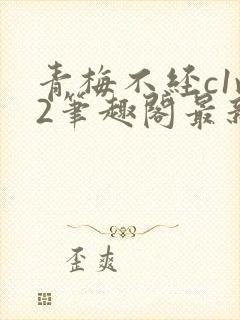 青梅不经c1v
2笔趣阁最新
歪爽